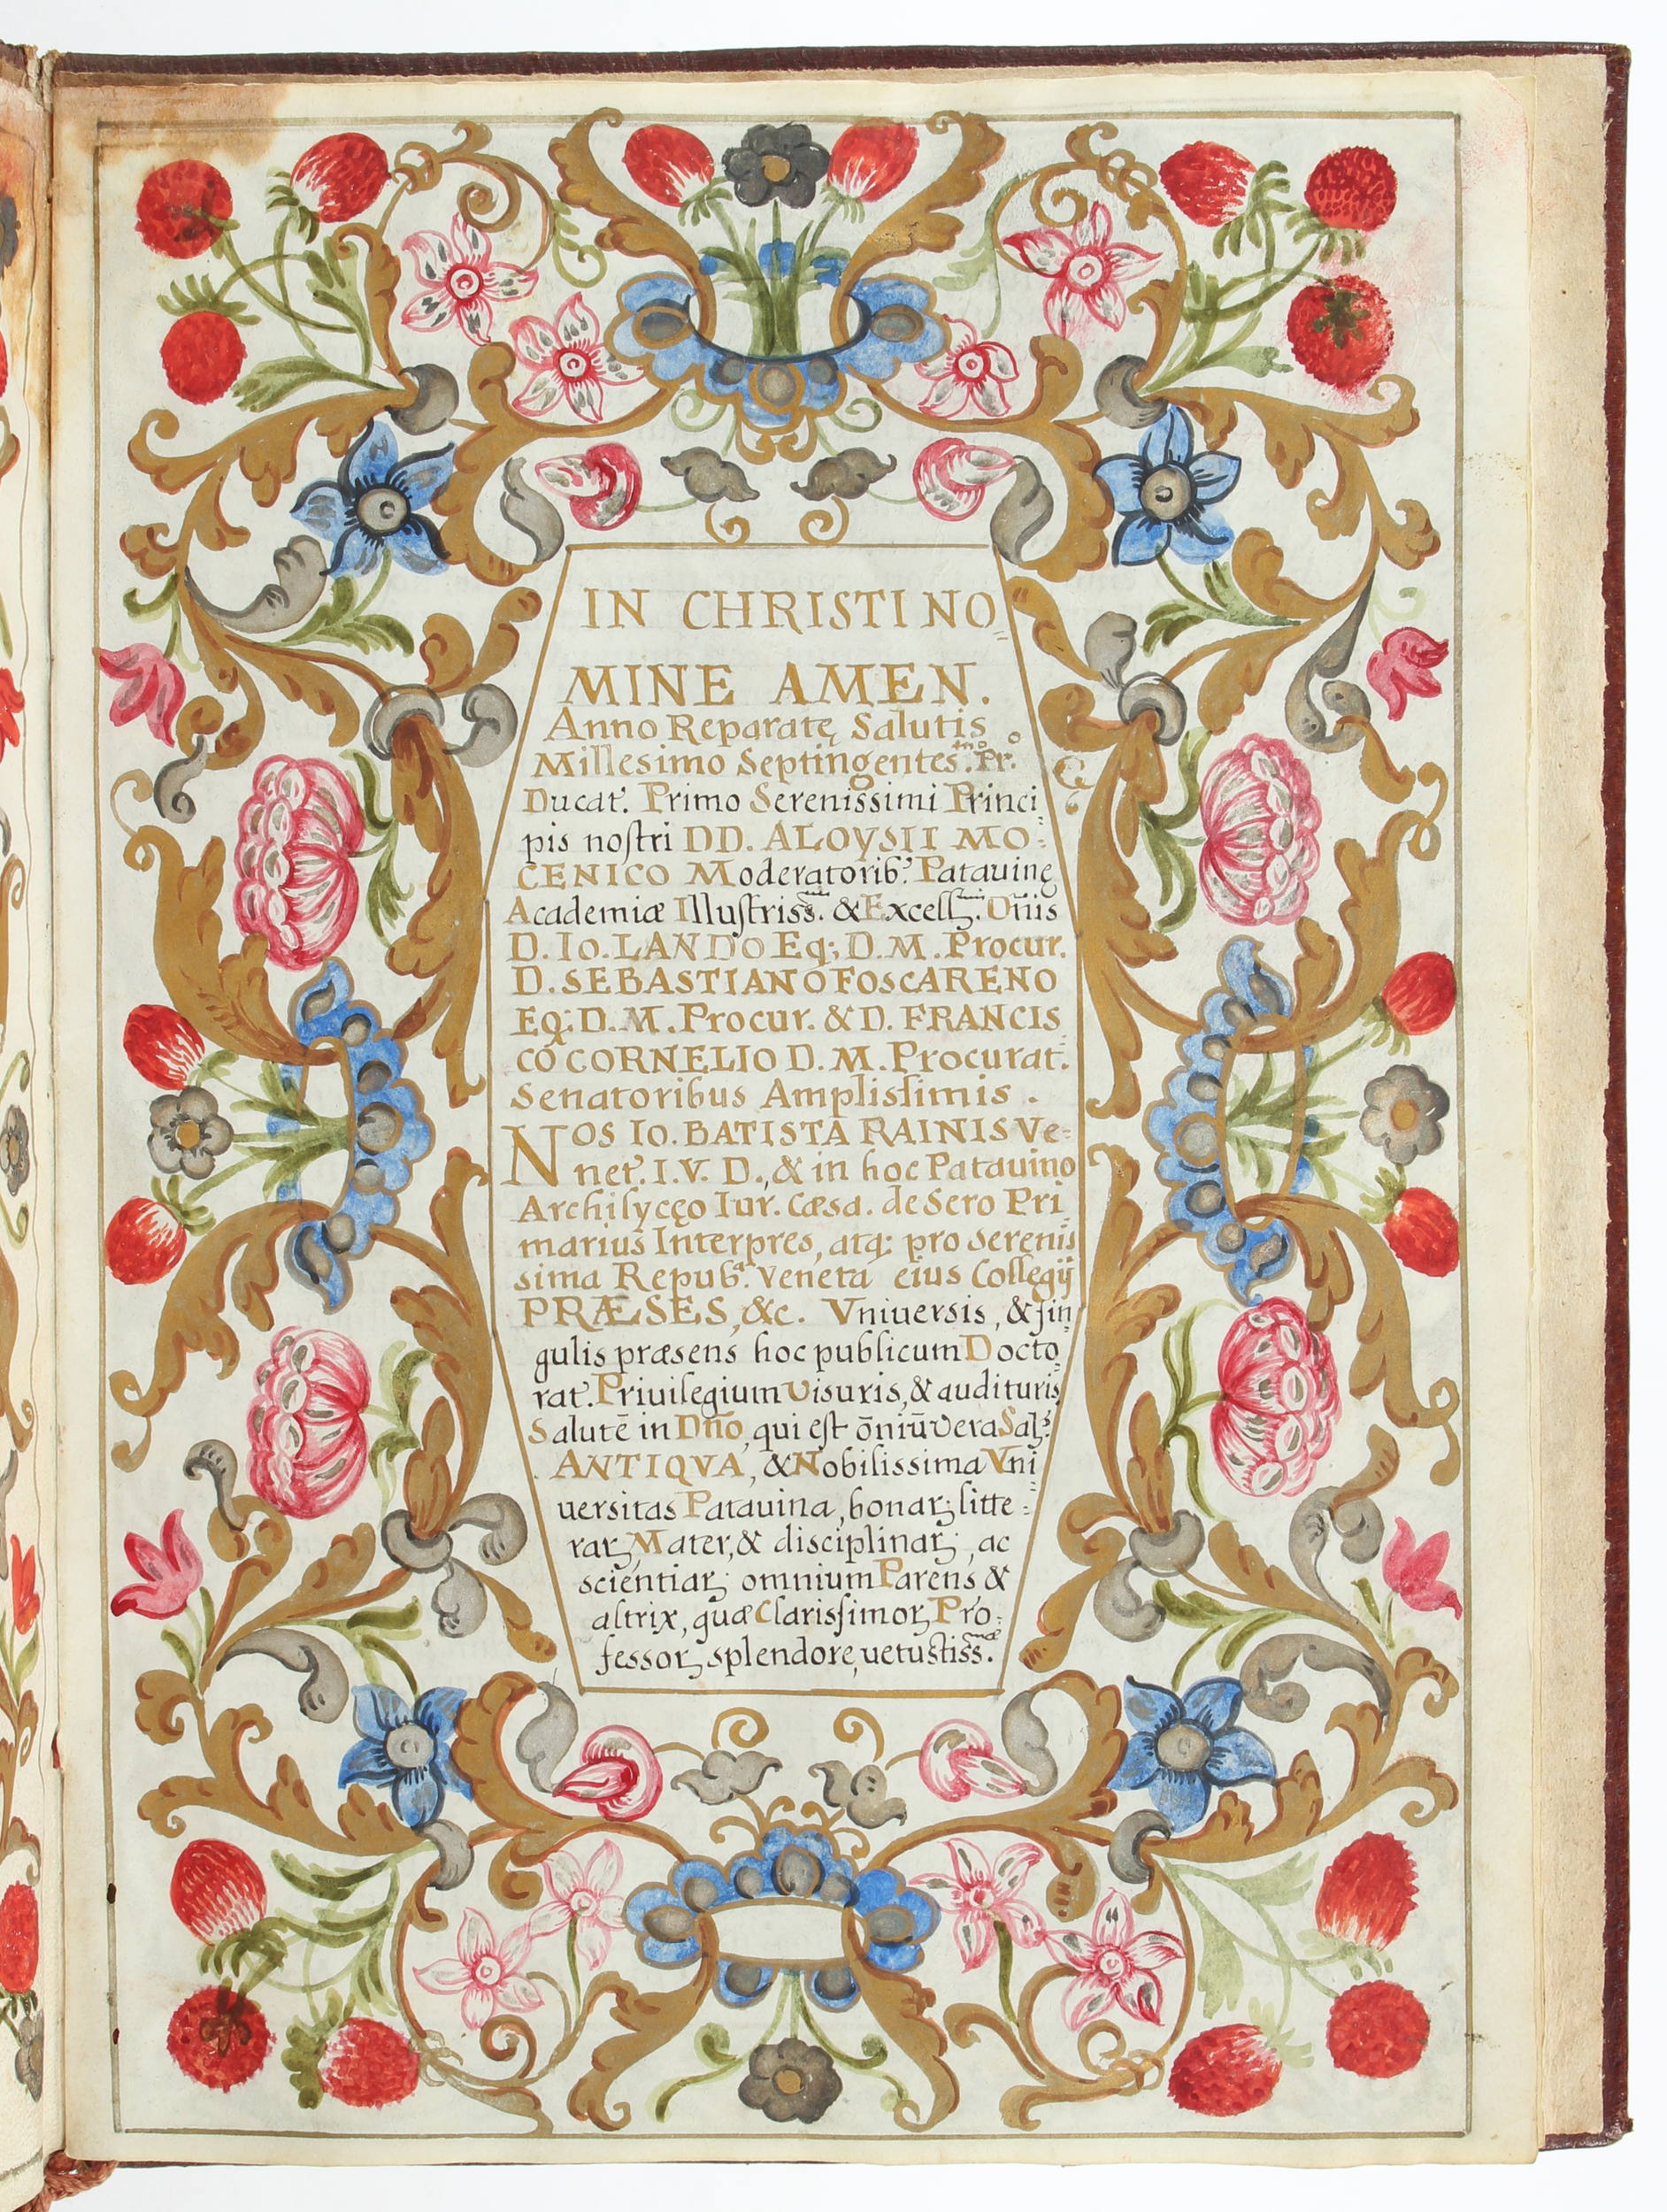 IN CHRISTI NO=
MINE AMEN.
Anno Reparatę Salutis
Millesimo Septingentes.^mo Pr.^o
Ducat. Primo Serenissimi Princi=
pis noſtri DD. ALOYSII MO=
CENICO Moderatorib.' Patauinę
Academiæ Illuſtriss.^mis & Excell.^mis Dñis
D. IO. LANDO Eq; D. M. Procur.
D. SEBASTIANO FOSCARENO
Eq; D. M. Procur. & D. FRANCIS=
CO CORNELIO D. M. Procurat.
Senatoribus Amplisſimis.
NOS IO. BATISTA RAINIS Ve=
net. I. V. D., & in hoc Patauino
Archilycęo Iur. Cæsa. de Sero Pri=
marius Interpres, atq; pro Serenis
sima Repub.^a Veneta eius Collegij
PRÆSES, &c. Vniuersis, & ſin=
gulis præsens hoc publicum Docto=
rat. Priuilegium Uisuris, & audituris
Salutē in Dño, qui eſt ōniū vera Sal.'
ANTIQVA, & Nobilissima Vni=
uersitas Patauina, bonaꝝ litte=
raꝝ Mater, & disciplinaꝝ, ac
scientiaꝝ omnium Parens &
altrix, quæ Clarisſimoꝝ Pro=
fessoꝝ splendore, uetustiss.^mæ